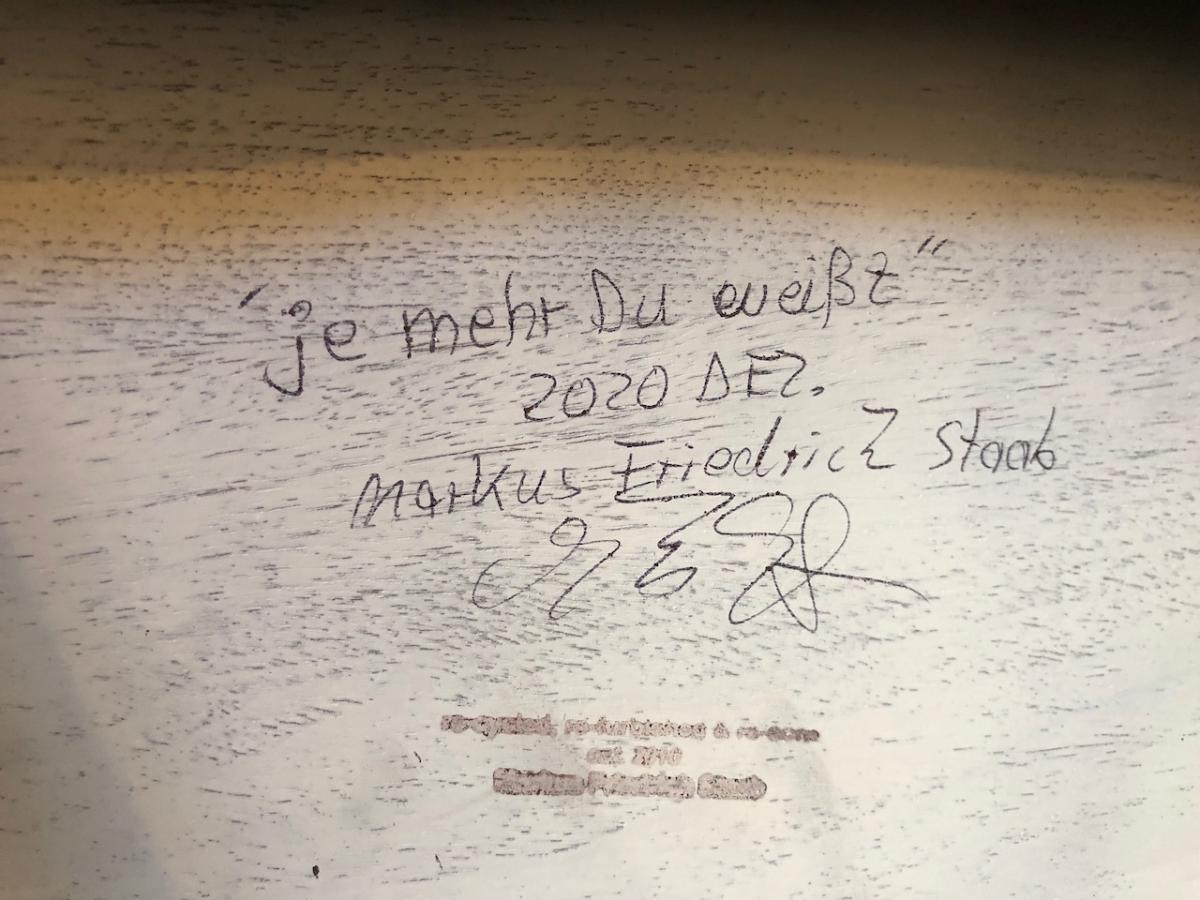 "je mehr Du weißt"
2020 DEZ.
Markus Friedrich Staab
re-cycled, re-furbished & re-done
Markus Friedrich Staab